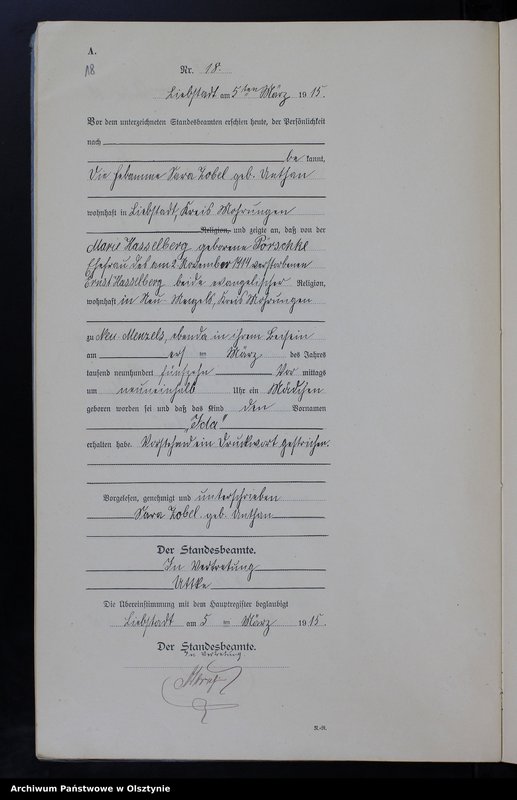 A.
18
Nr. 18.
Liebstadt am 5ten März 1915.
Vor dem unterzeichneten Standesbeamten erschien heute, der Persönlichkeit
nach
be kannt,
die Hebamme Sara Zobel geb. Anthan
wohnhaft in Liebstadt, Kreis Mohrungen
Religion, und zeigte an, daß von der
Marie Hasselberg geborene Pörschke
Ehefrau des am 2 November 1914 verstorbenen
Ernst Hasselberg beide evangelischer Religion,
wohnhaft in Neu-Menzels, Kreis Mohrungen
zu Neu-Menzels, ebenda in ihrem Beisein
am ersten März des Jahres
tausend neunhundert fünfzehn Vor mittags
um neuneinhalb Uhr ein Mädchen
geboren worden sei und daß das Kind den Vornamen
„Ida“
erhalten habe. Vorstehend ein Druckwort gestrichen.
Vorgelesen, genehmigt und unterschrieben
Sara Zobel geb. Anthan
Der Standesbeamte.
In Vertretung
Uttke
Die Übereinstimmung mit dem Hauptregister beglaubigt
Liebstadt am 5ten März 1915.
Der Standesbeamte.
In Vertretung
N.-R.
Archiwum Państwowe w Olsztynie